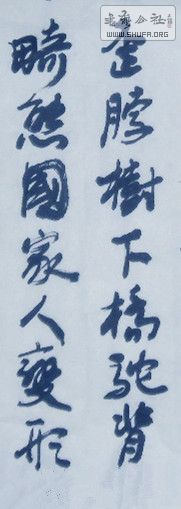 書藝公社
WWW.SHUFA.ORG
歪脖樹下橋駝背
畸態國家人變形